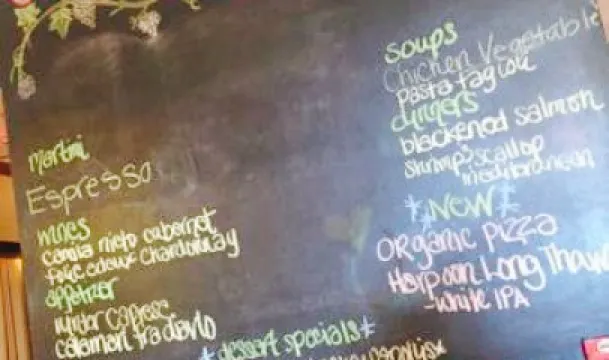 martini
Espresso
wines
cabernet
Chardonnay
appetizer
Caprese
calamari fra diavlo
*dessert specials*
soups
Chicken Vegetable
pasta fagioli
dinners
blackened salmon
shrimp & scallop
mediterranean
*NEW*
ORganic Pizza
Harpoon Long Thaw
-White IPA